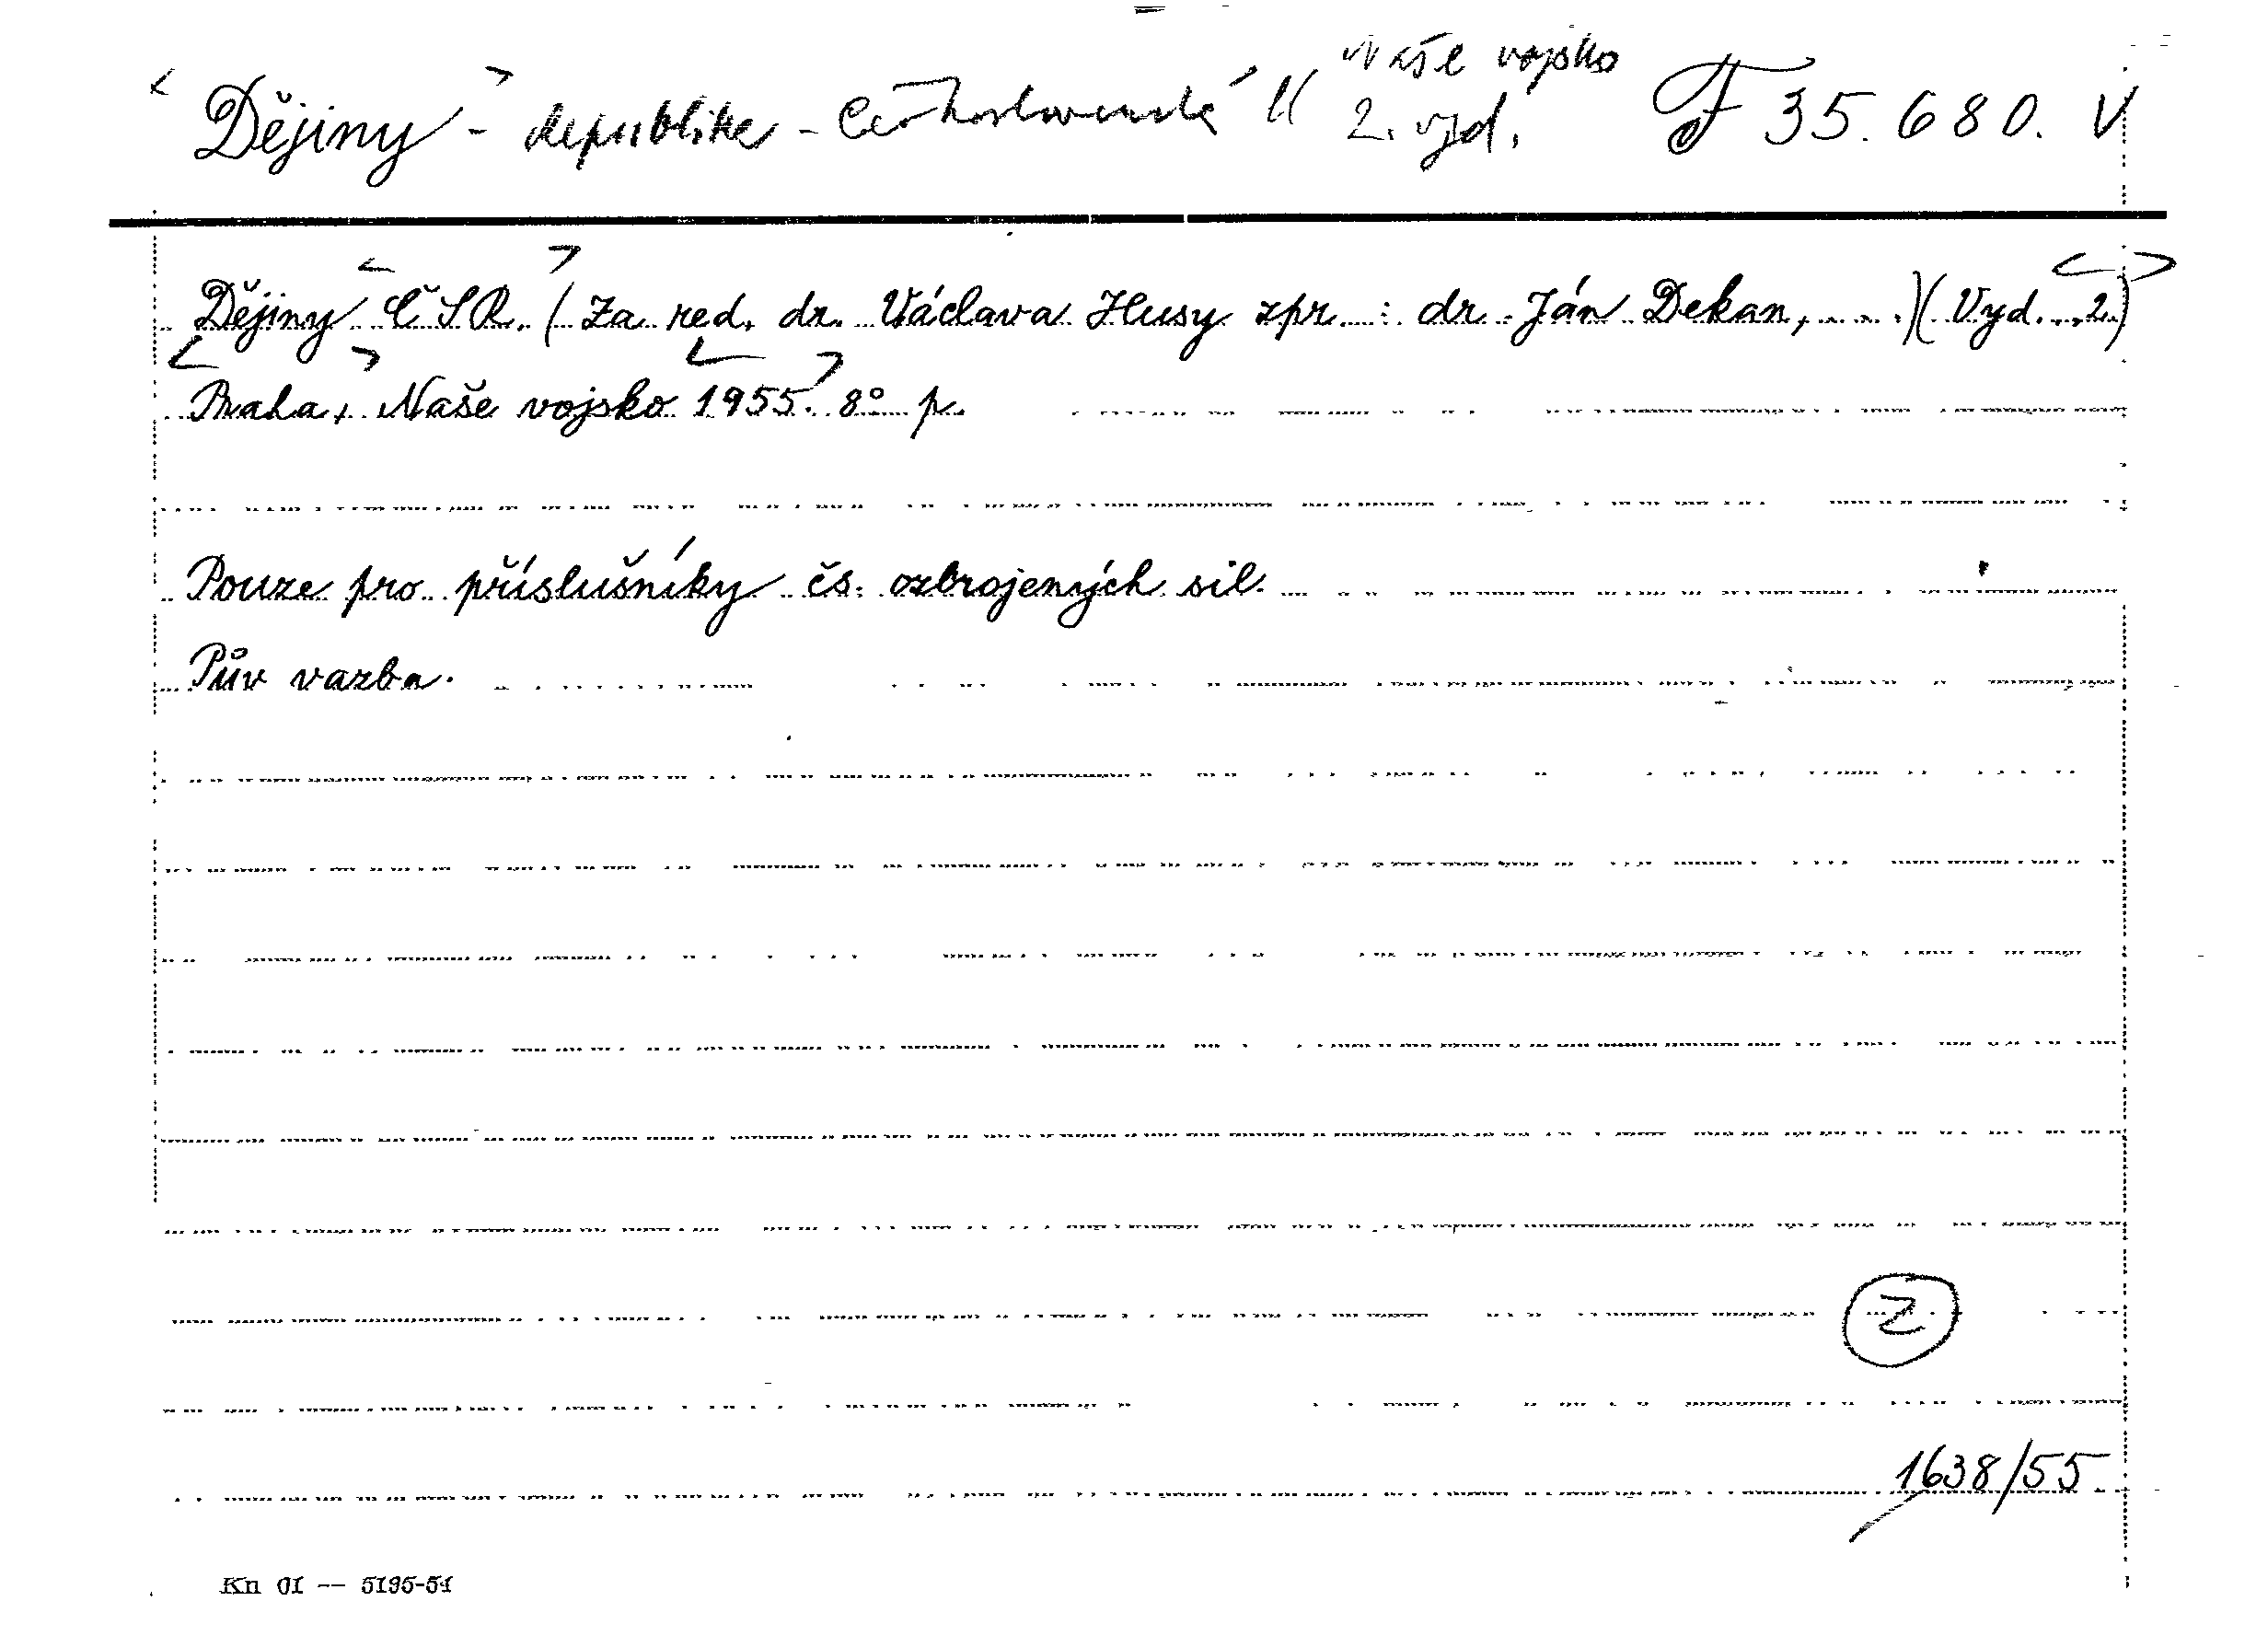 Naše vojsko
Dějiny - republika - Československá 2. vyd. F 35.680. V
Dějiny ČSR. (Za red. dr. Václava Husy zpr. : dr. Ján Dekan, ....)(Vyd. 2.)
Praha, Naše vojsko 1955. 8° p.
Pouze pro příslušníky čs. ozbrojených sil.
Pův vazba.
Z
1638/55
Kn 01 -- 5195-54